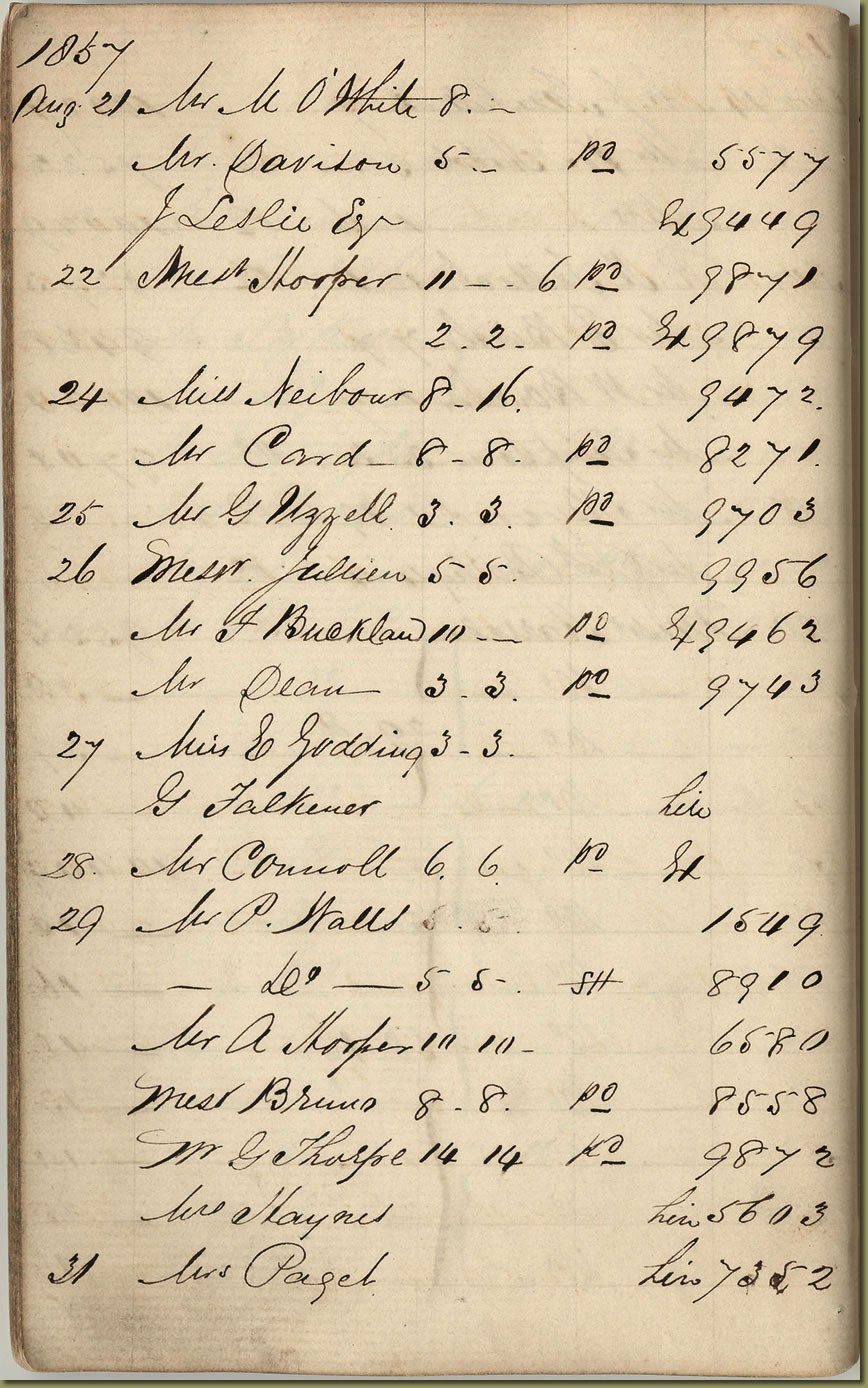 1857
Aug. 21 Mr M O'White 8. –
Mr. Davison 5 – pd 5577
J Leslie Esqr Ex 9449
22 Messrs Hooper 11 – . 6 pd 9871
2 . 2 – pd Ex 9879
24 Miss Neibour 8 – 16. 9472.
Mr Card – 8 – 8 . pd 8271.
25 Mr G Uzzell 3 . 3 . pd 9703
26 Messrs. Jullien 5 5 . 9956
Mr F Buckland 10 – – pd Ex 9462
Mr Dean 3 . 3 . pd 9743
27 Miss E Godding 3 – 3 .
G Falkener hire
28. Mr Connoll 6. 6 pd Ex
29 Mr P. Watts 1549
— Do — 5 5 – . SH 8910
Mr A Hooper 10 10 – 6580
Messrs Bruno 8 – 8. pd 8558
Mr G Thorpe 14 14 pd 9872
Mrs Haynes hire 5603
31 Mrs Paget hire 7352